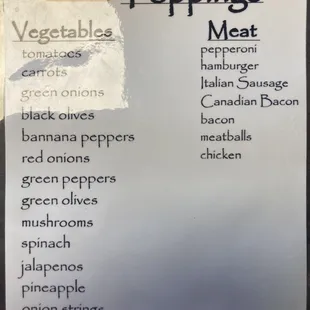 Toppings
Vegetables
tomatoes
carrots
green onions
black olives
bannana peppers
red onions
green peppers
green olives
mushrooms
spinach
jalapenos
pineapple
onion strings
Meat
pepperoni
hamburger
Italian Sausage
Canadian Bacon
bacon
meatballs
chicken